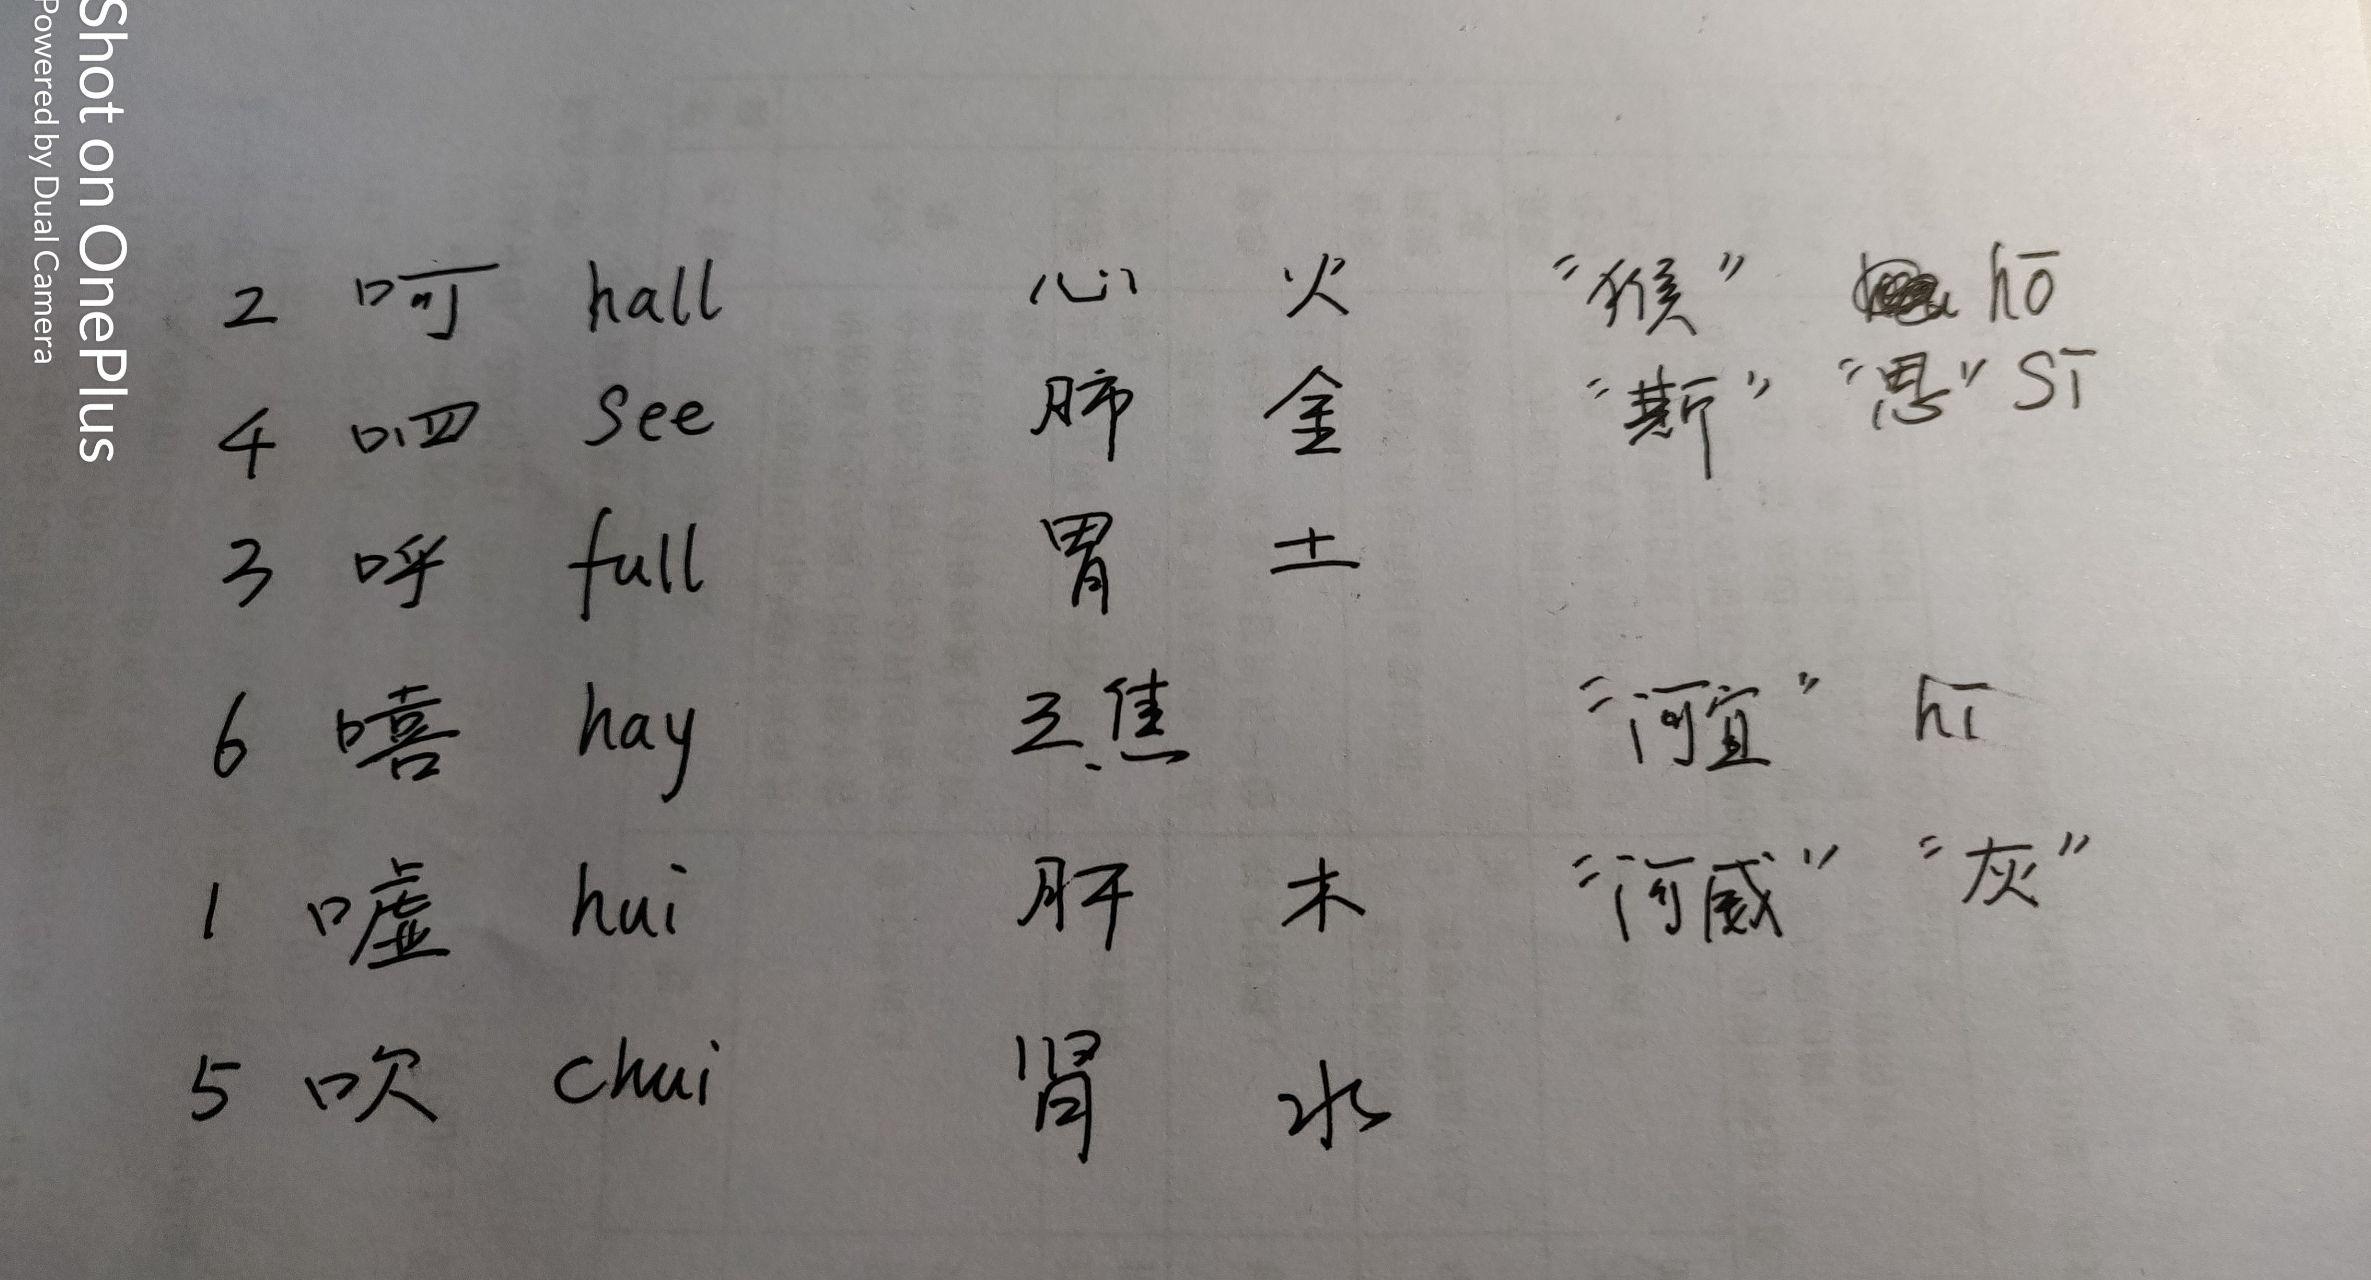 2 呵 hall 心 火 "猴" hō
4 呬 see 肺 金 "斯" "思" sī
3 呼 full 胃 土
6 嘻 hay 三焦 "河宜" hī
1 嘘 hui 肝 木 "河威" "灰"
5 吹 chui 肾 水
Shot on OnePlus
Powered by Dual Camera